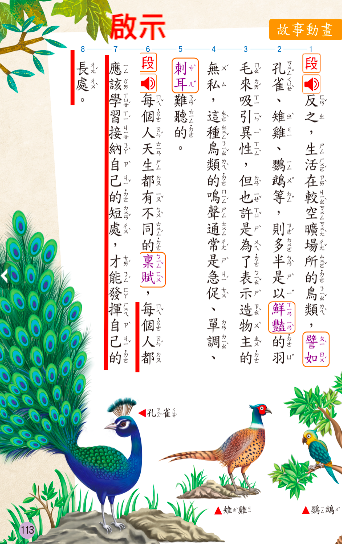 啟示
故事動畫
1 段 反之，生活在較空曠場所的鳥類，譬如
2 孔雀、雉雞、鸚鵡等，則多半是以鮮豔的羽
3 毛來吸引異性，但也許是為了表示造物主的
4 無私，這種鳥類的鳴聲通常是急促、單調、
5 刺耳難聽的。
6 段 每個人天生都有不同的稟賦，每個人都
7 應該學習接納自己的短處，才能發揮自己的
8 長處。
孔雀
雉雞
鸚鵡
113